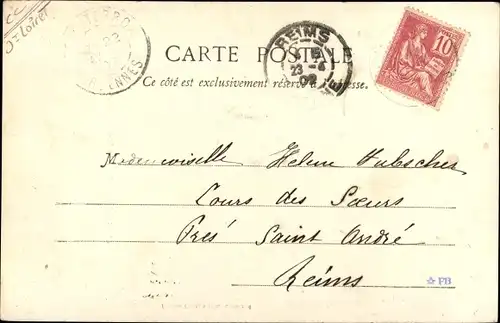 CC
Dt Loiret
REIMS
23 - 6
02
10
CARTE POSTALE
Ce côté est exclusivement réservé à l'adresse.
Mademoiselle Helene Hubscher
Cours des Sœurs
Prés Saint André
Reims
☆ FB